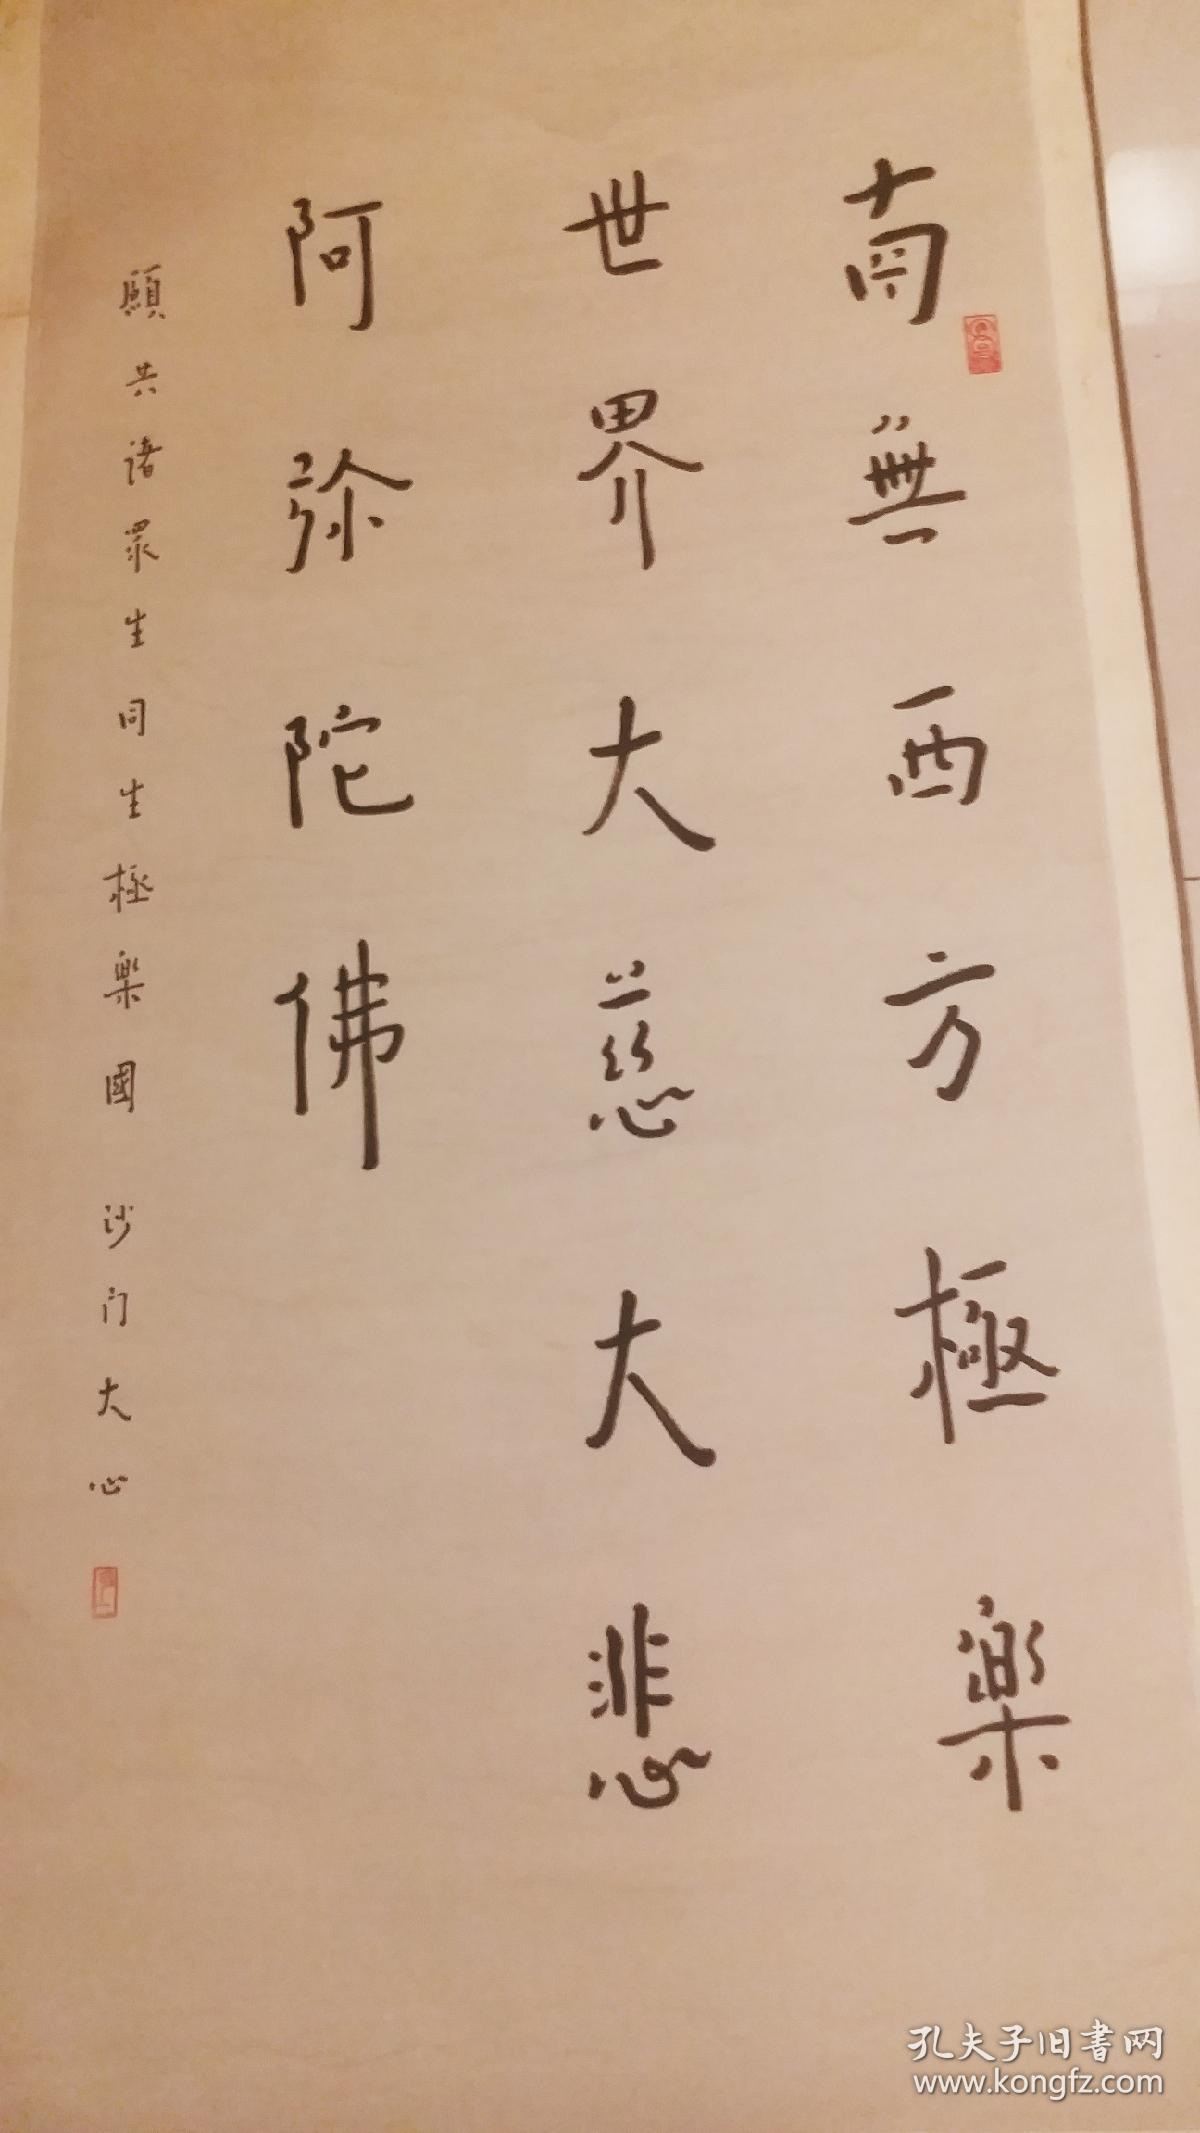 南無西方極樂
世界大慈大悲
阿弥陀佛
願共諸眾生同生極樂國 沙门大心
孔夫子旧書网
www.kongfz.com